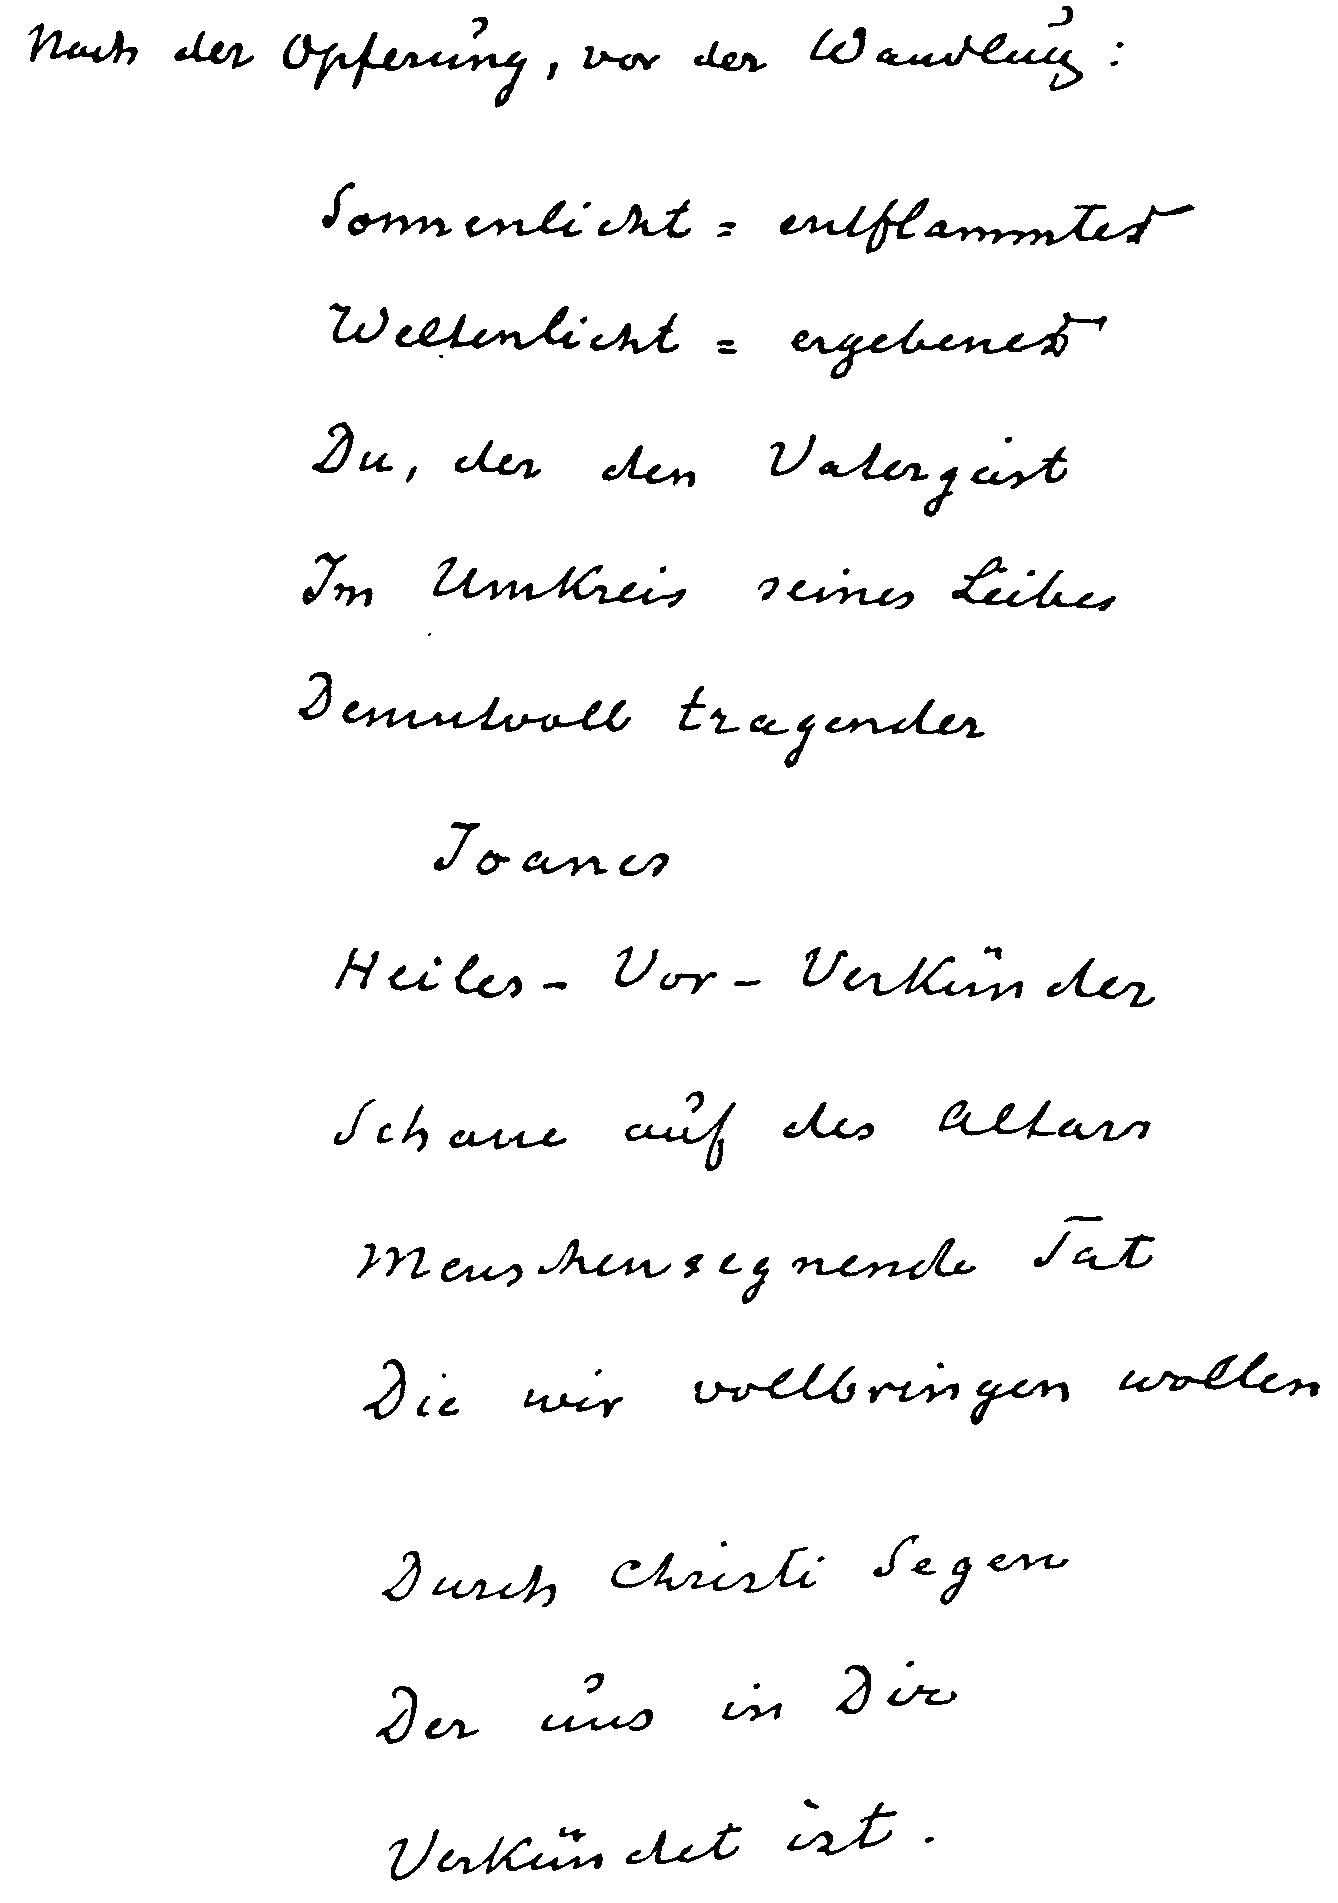 Nach der Opferung, vor der Wandlung:
Sonnenlicht = entflammter
Weltenlicht = ergebener
Du, der den Vatergeist
Im Umkreis seines Leibes
Demutvoll tragender
Joanes
Heiles - Vor - Verkünder
Schaue auf des Altars
Menschensegnende Tat
Die wir vollbringen wollen
Durch Christi Segen
Der uns in Dir
Verkündet ist.